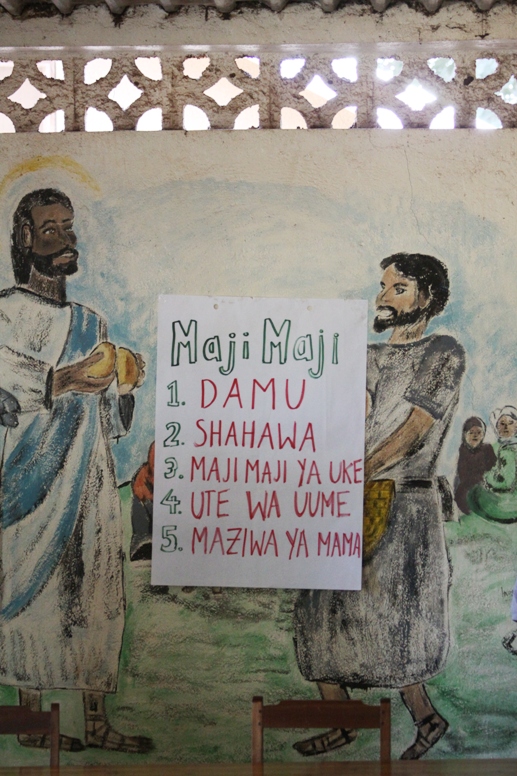 Maji Maji
1. DAMU
2. SHAHAWA
3. MAJI MAJI YA UKE
4. UTE WA UUME
5. MAZIWA YA MAMA